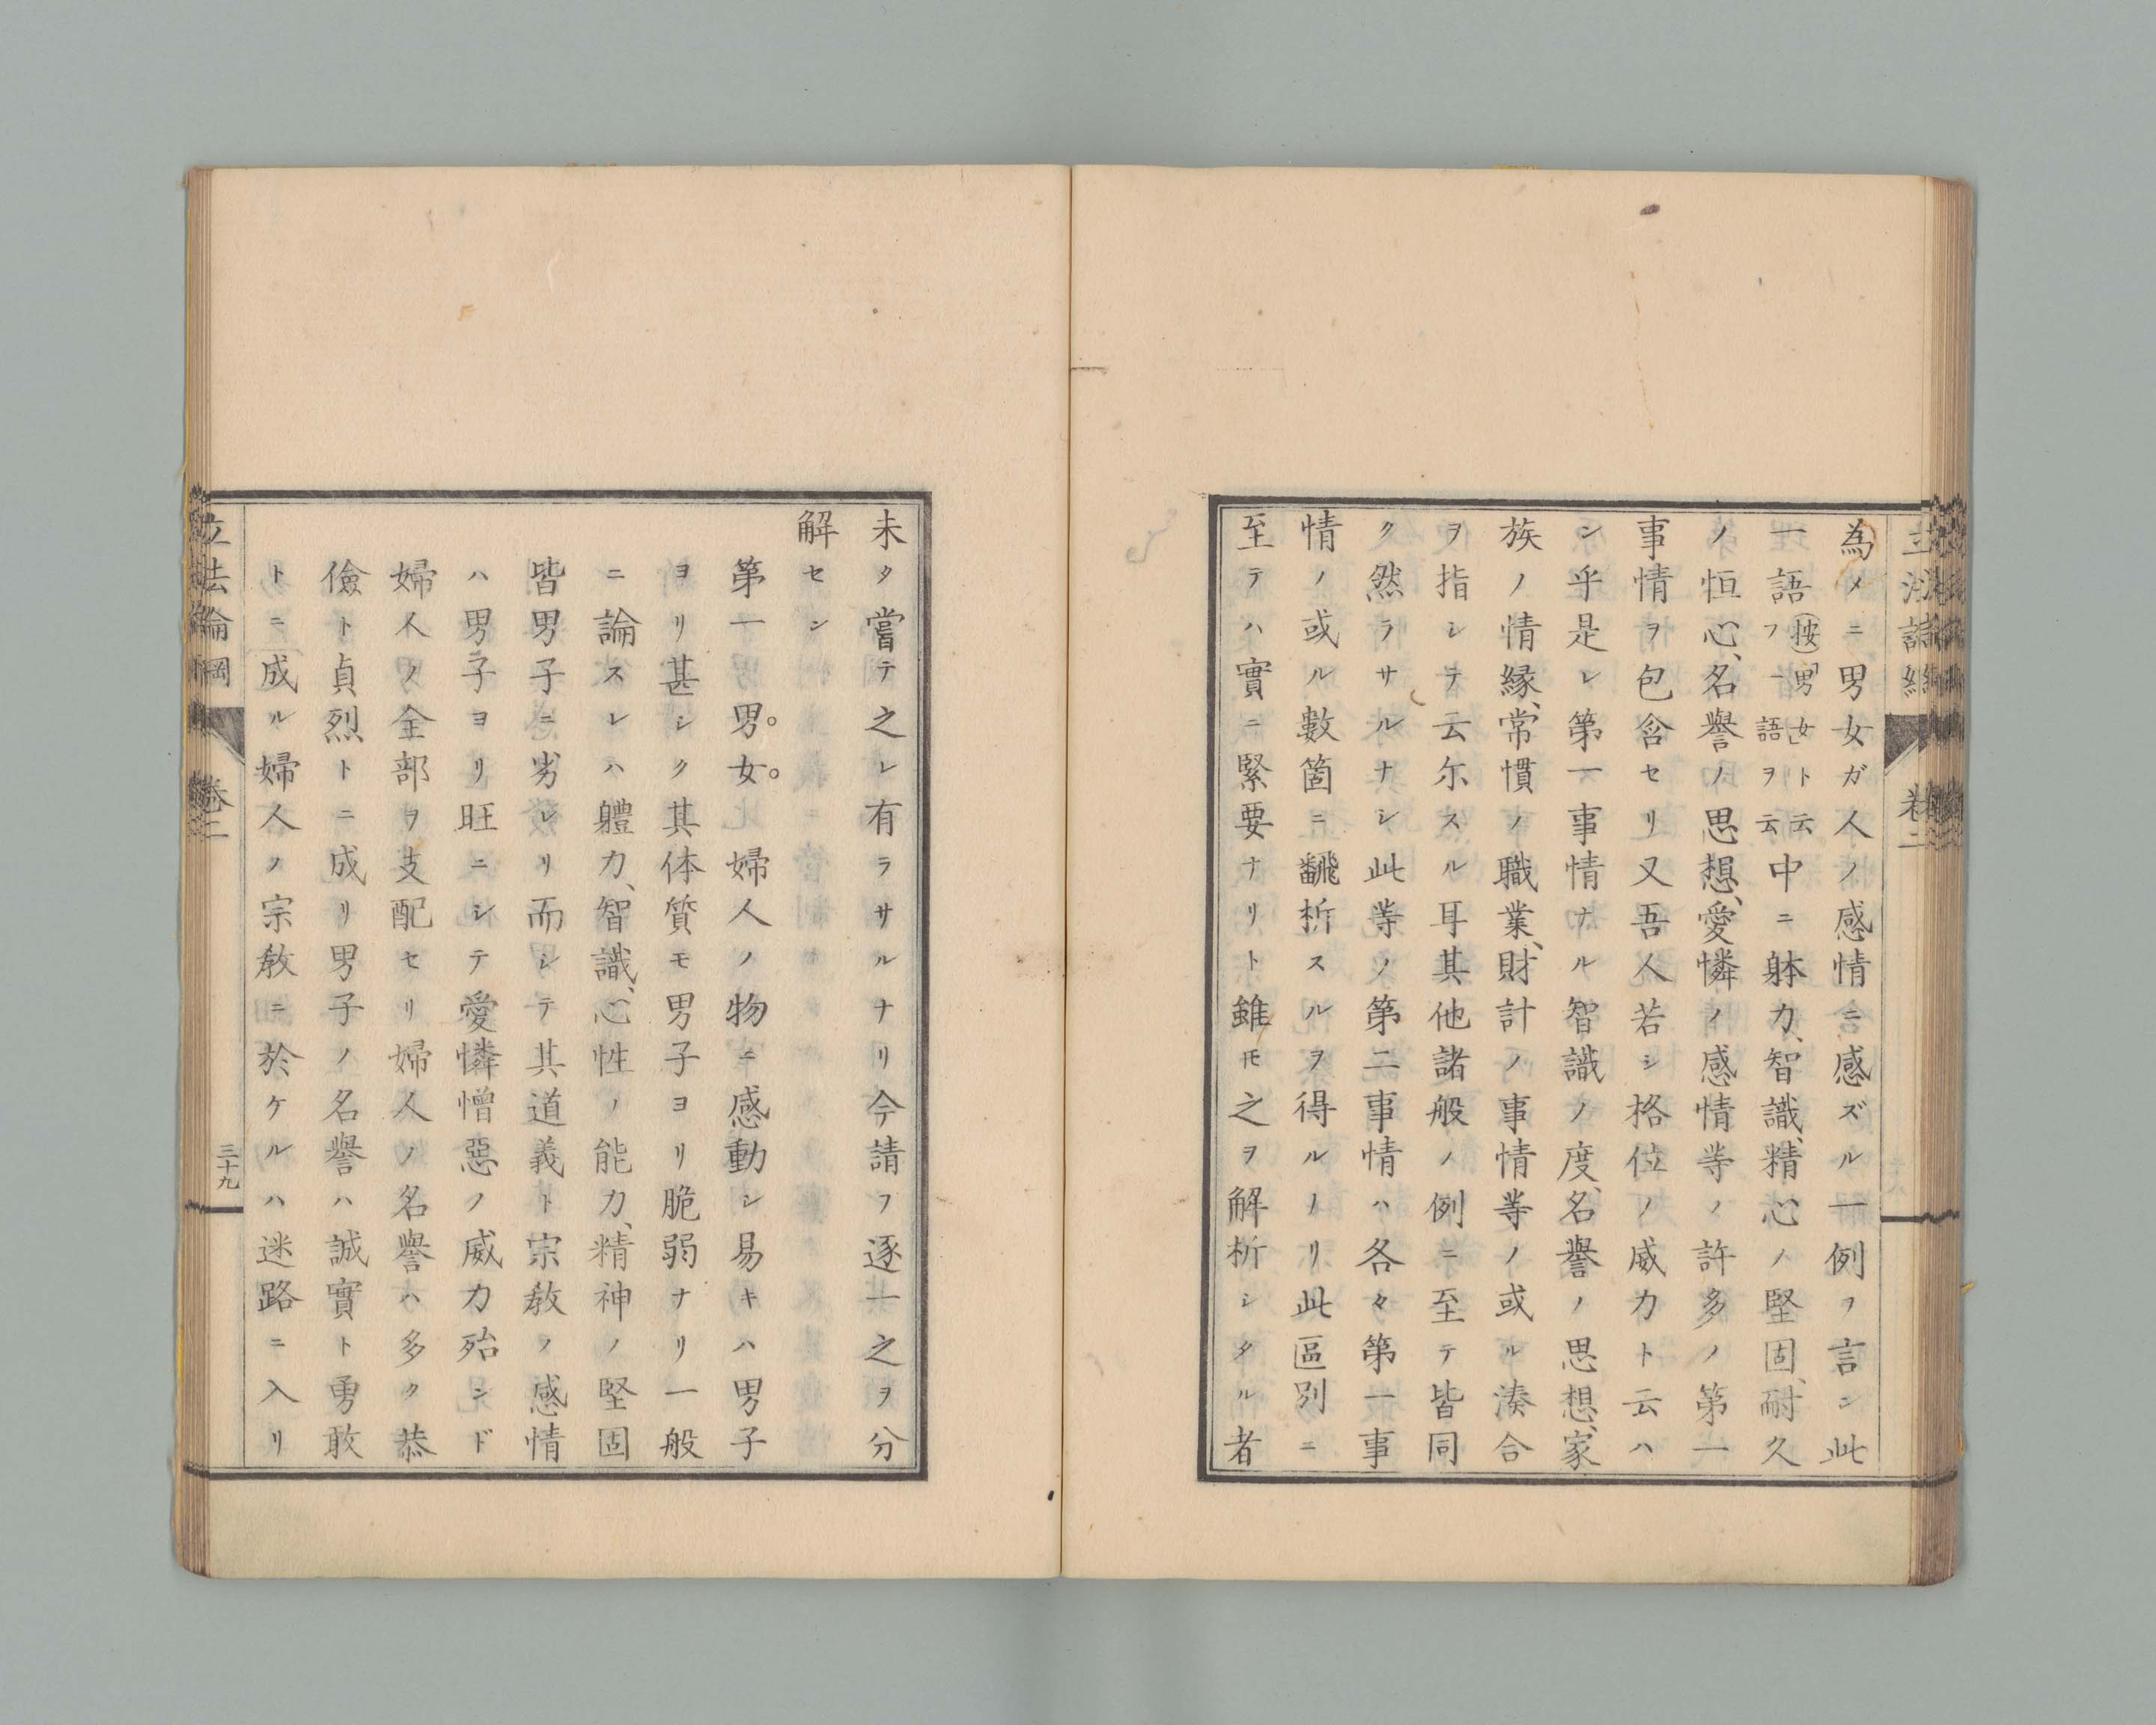 為メニ男女ガ人ノ感情ニ感ズル一例ヲ言ン此
一語(按)「男女」ト云フ一語ヲ云中ニ躰力、智識、精心ノ堅固、耐久
ノ恒心、名譽ノ思想、愛憐ノ感情等ノ許多ノ第一
事情ヲ包含セリ又吾人若シ格位ノ威力ト云ハ
ン乎是レ第一事情ナル智識ノ度、名譽ノ思想、家
族ノ情縁、常慣ノ職業、財計ノ事情等ノ或ル湊合
ヲ指シテ云尓スル耳其他諸般ノ例ニ至テ皆同
ク然ラサルナシ此等ノ第二事情ハ各々第一事
情ノ或ル數箇ニ飜析スルヲ得ルノリ此區別ニ
至テハ實ニ緊要ナリト雖モ之ヲ解析シタル者
立法論綱
巻二
未タ嘗テ之レ有ラサルナリ今請フ逐一之ヲ分
解セン
第一男女。婦人ノ物ニ感動シ易キハ男子
ヨリ甚シク其体質モ男子ヨリ脆弱ナリ一般
ニ論スレハ軆力、智識、心性ノ能力、精神ノ堅固
皆男子ニ劣レリ而シテ其道義ト宗教ノ感情
ハ男子ヨリ旺ニシテ愛憐憎惡ノ威力殆ンド
婦人ノ全部ヲ支配セリ婦人ノ名譽ハ多ク恭
儉ト貞烈トニ成リ男子ノ名譽ハ誠實ト勇敢
トニ成ル婦人ノ宗教ニ於ケルハ迷路ニ入リ
立法論綱
巻二
三十九